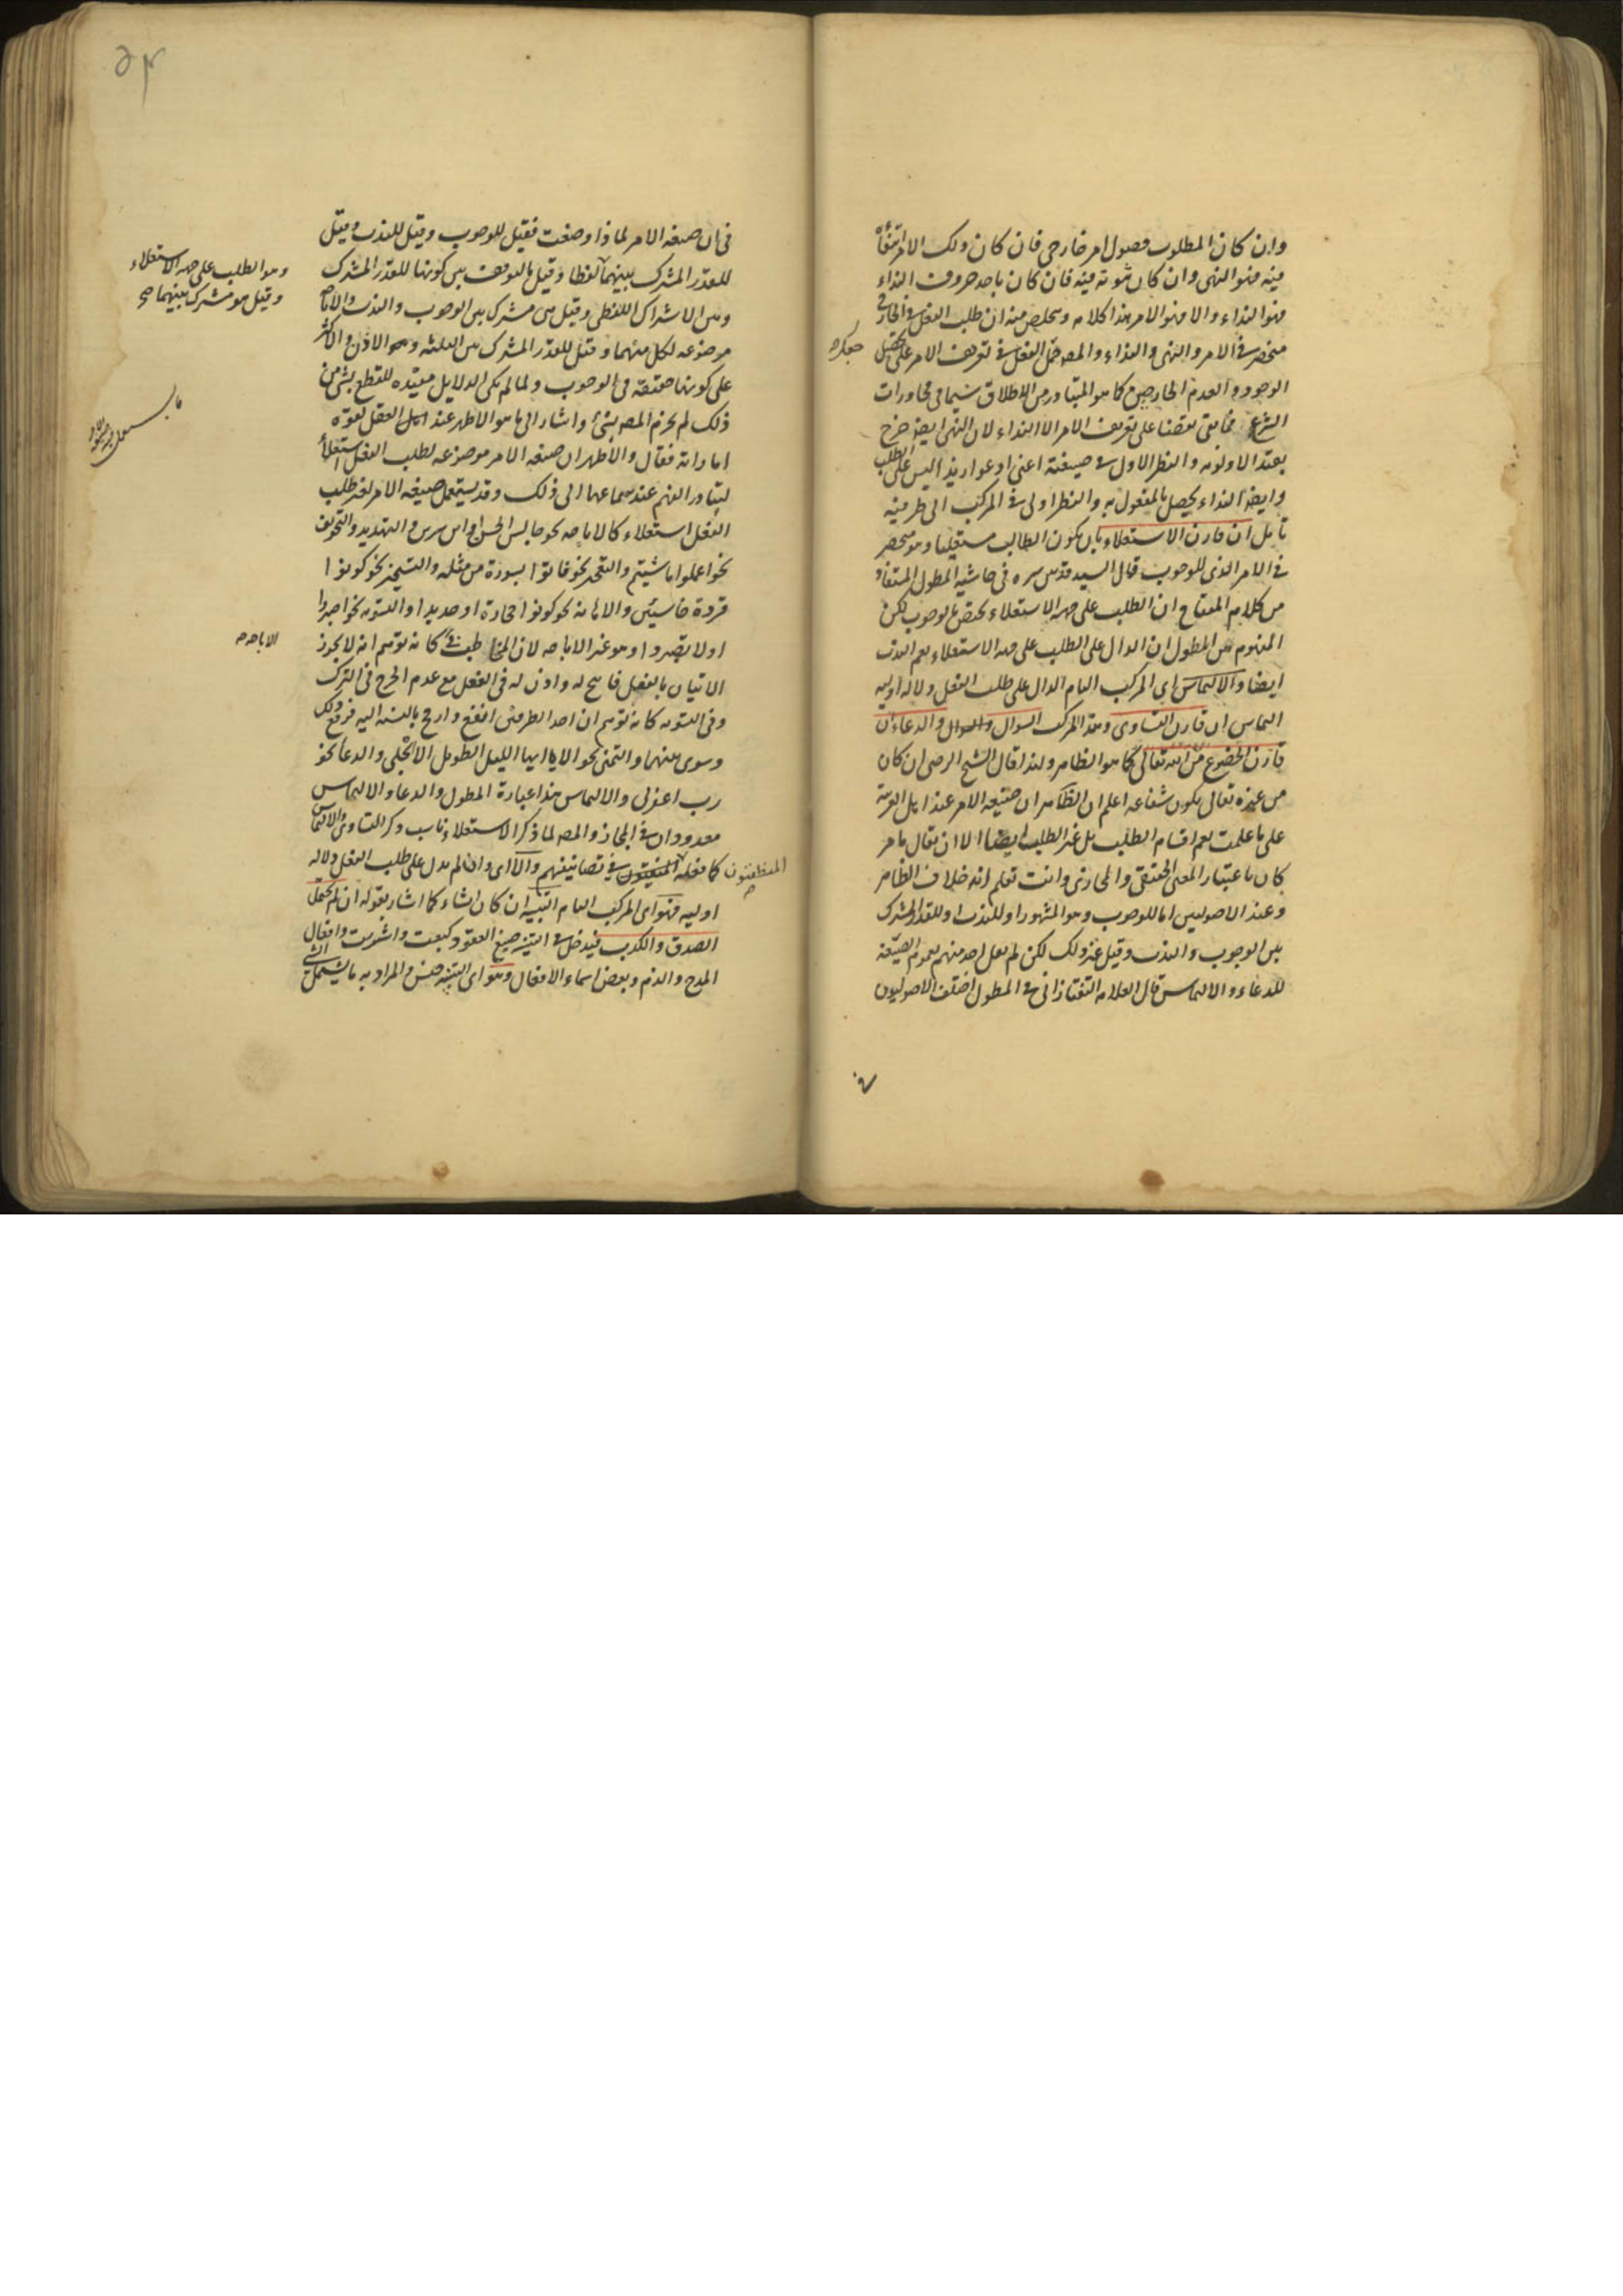 وان كان المطلوب حصول امر خارجى فان كان ذلك الامر انتفاء
فيه فهو النهى وان كان ثبوته فيه فان كان باحد حروف النداء
فهو النداء والا فهو الامر هذا كلامه وتلخص منه ان طلب الفعل فى الخارج
منحصر فى الامر والنهى والنداء والمصه حمل الفعل فى تعريف الامر على
الوجود والعدم الخارجين كما هو المتبادر من الاطلاق سيما فى محاورات
الشرع فما بقى نقضا على تعريف الامر الا النداء لان النهى ايضا خرج
بقيد الاولويه والنظر الاول فى صيغته اعنى ادعو اريد اليس على الطلب
وايضا النداء يحصل بالمفعول به والنظر اولى فى المركب الى طرفيه
تامل ان قارن الاستعلاء بان يكون الطالب مستعليا وهو منحصر
فى الامر الذى للوجوب قال السيد قدس سره فى حاشيه المطول المستفاد
من كلام المفتاح ان الطلب على جهه الاستعلاء مختص بالوجوب لكن
المفهوم من المطول ان الدال على الطلب على جهه الاستعلاء يعم الندب
ايضا والالتماس اى المركب التام الدال على طلب الفعل دلاله اوليه
التماس ان قارن التساوى وهذا المركب السوال والدعاء ان
قارن الخضوع من الله تعالى كما هو الظاهر ولذا قال الشيخ الرضى ان كان
من غيره تعالى يكون شفاعه اعلم ان الظاهر ان صيغه الامر عند اهل العربيه
على ما علمت يعم اقسام الطلب بل غير الطلب ايضا الا ان يقال ما مر
كان باعتبار المعنى الحقيقى والمجازى وانت تعلم انه خلاف الظاهر
وعند الاصوليين اما للوجوب وهو المشهور او للندب او للقدر المشترك
بين الوجوب والندب وقيل غير ذلك لكن لم يقل احد منهم بعموم الصيغه
للدعاء والالتماس قال العلامه التفتازانى فى المطول اختلف الاصوليون
فى ان صيغه الامر لما ذا وضعت فقيل للوجوب وقيل للندب وقيل
للقدر المشترك بينهما لفظا وقيل بالتوقف بين كونها للقدر المشترك
وهو الطلب على جهه الاستعلاء
وقيل هو مشترك بينهما صح
وبين الاشتراك اللفظى وقيل هى مشترك بين الوجوب والندب والاباحه
موضوعه لكل منهما وقيل للقدر المشترك بين الثلثه وهو الاذن والاكثر
على كونها حقيقه فى الوجوب ولما لم يكن الدلايل مفيده للقطع بشئ من
ذلك لم يجزم المصه بشئ واشار الى ما هو الاظهر عند اهل العقل لقوه
اماراته فقال والاظهر ان صيغه الامر موضوعه لطلب الفعل استعلاء
لتبادر الفهم عند سماعها الى ذلك وقد يستعمل صيغه الامر لغير طلب
الفعل استعلاء كالاباحه نحو جالس الحسن او ابن سيرين والتهديد والتخويف
نحو اعملوا ما شيتم والتعجيز نحو فاتوا بسورة من مثله والتسخير نحو كونوا
قردة خاسئين والاهانه نحو كونوا حجارة او حديدا والتسويه نحو اصبروا
او لا تصبروا وهو غير الاباحه لان المخاطب فى كانه توهم انه لا يجوز
الاباحه
الاتيان بالفعل فابيح له واذن له فى الفعل مع عدم الحرج فى الترك
وفى التسويه كانه توهم ان احد الطرفين انفع وارجح بالنسبه اليه فرفع ذلك
وسوى بينهما والتمنى نحو الا ايها الليل الطويل الا انجلى والدعاء نحو
رب اغفرلى والالتماس هذا عبارة المطول والدعاء والالتماس
معدودان فى المجاز والمصه لما ذكر الاستعلاء ناسب ذكر التساوى والالتماس
كما فعله المنطقيون فى تصانيفهم والا اى وان لم يدل على طلب الفعل دلاله
اوليه فهو اى المركب التام التنبيه ان كان انشاء كما اشار بقوله ان لم يحتمل
الصدق والكذب فيدخل فى التنبيه صيغ العقود كبعت واشتريت وافعال
المدح والذم وبعض اسماء الافعال وهو اى التنبيه جنس والمراد به ما يشتمل